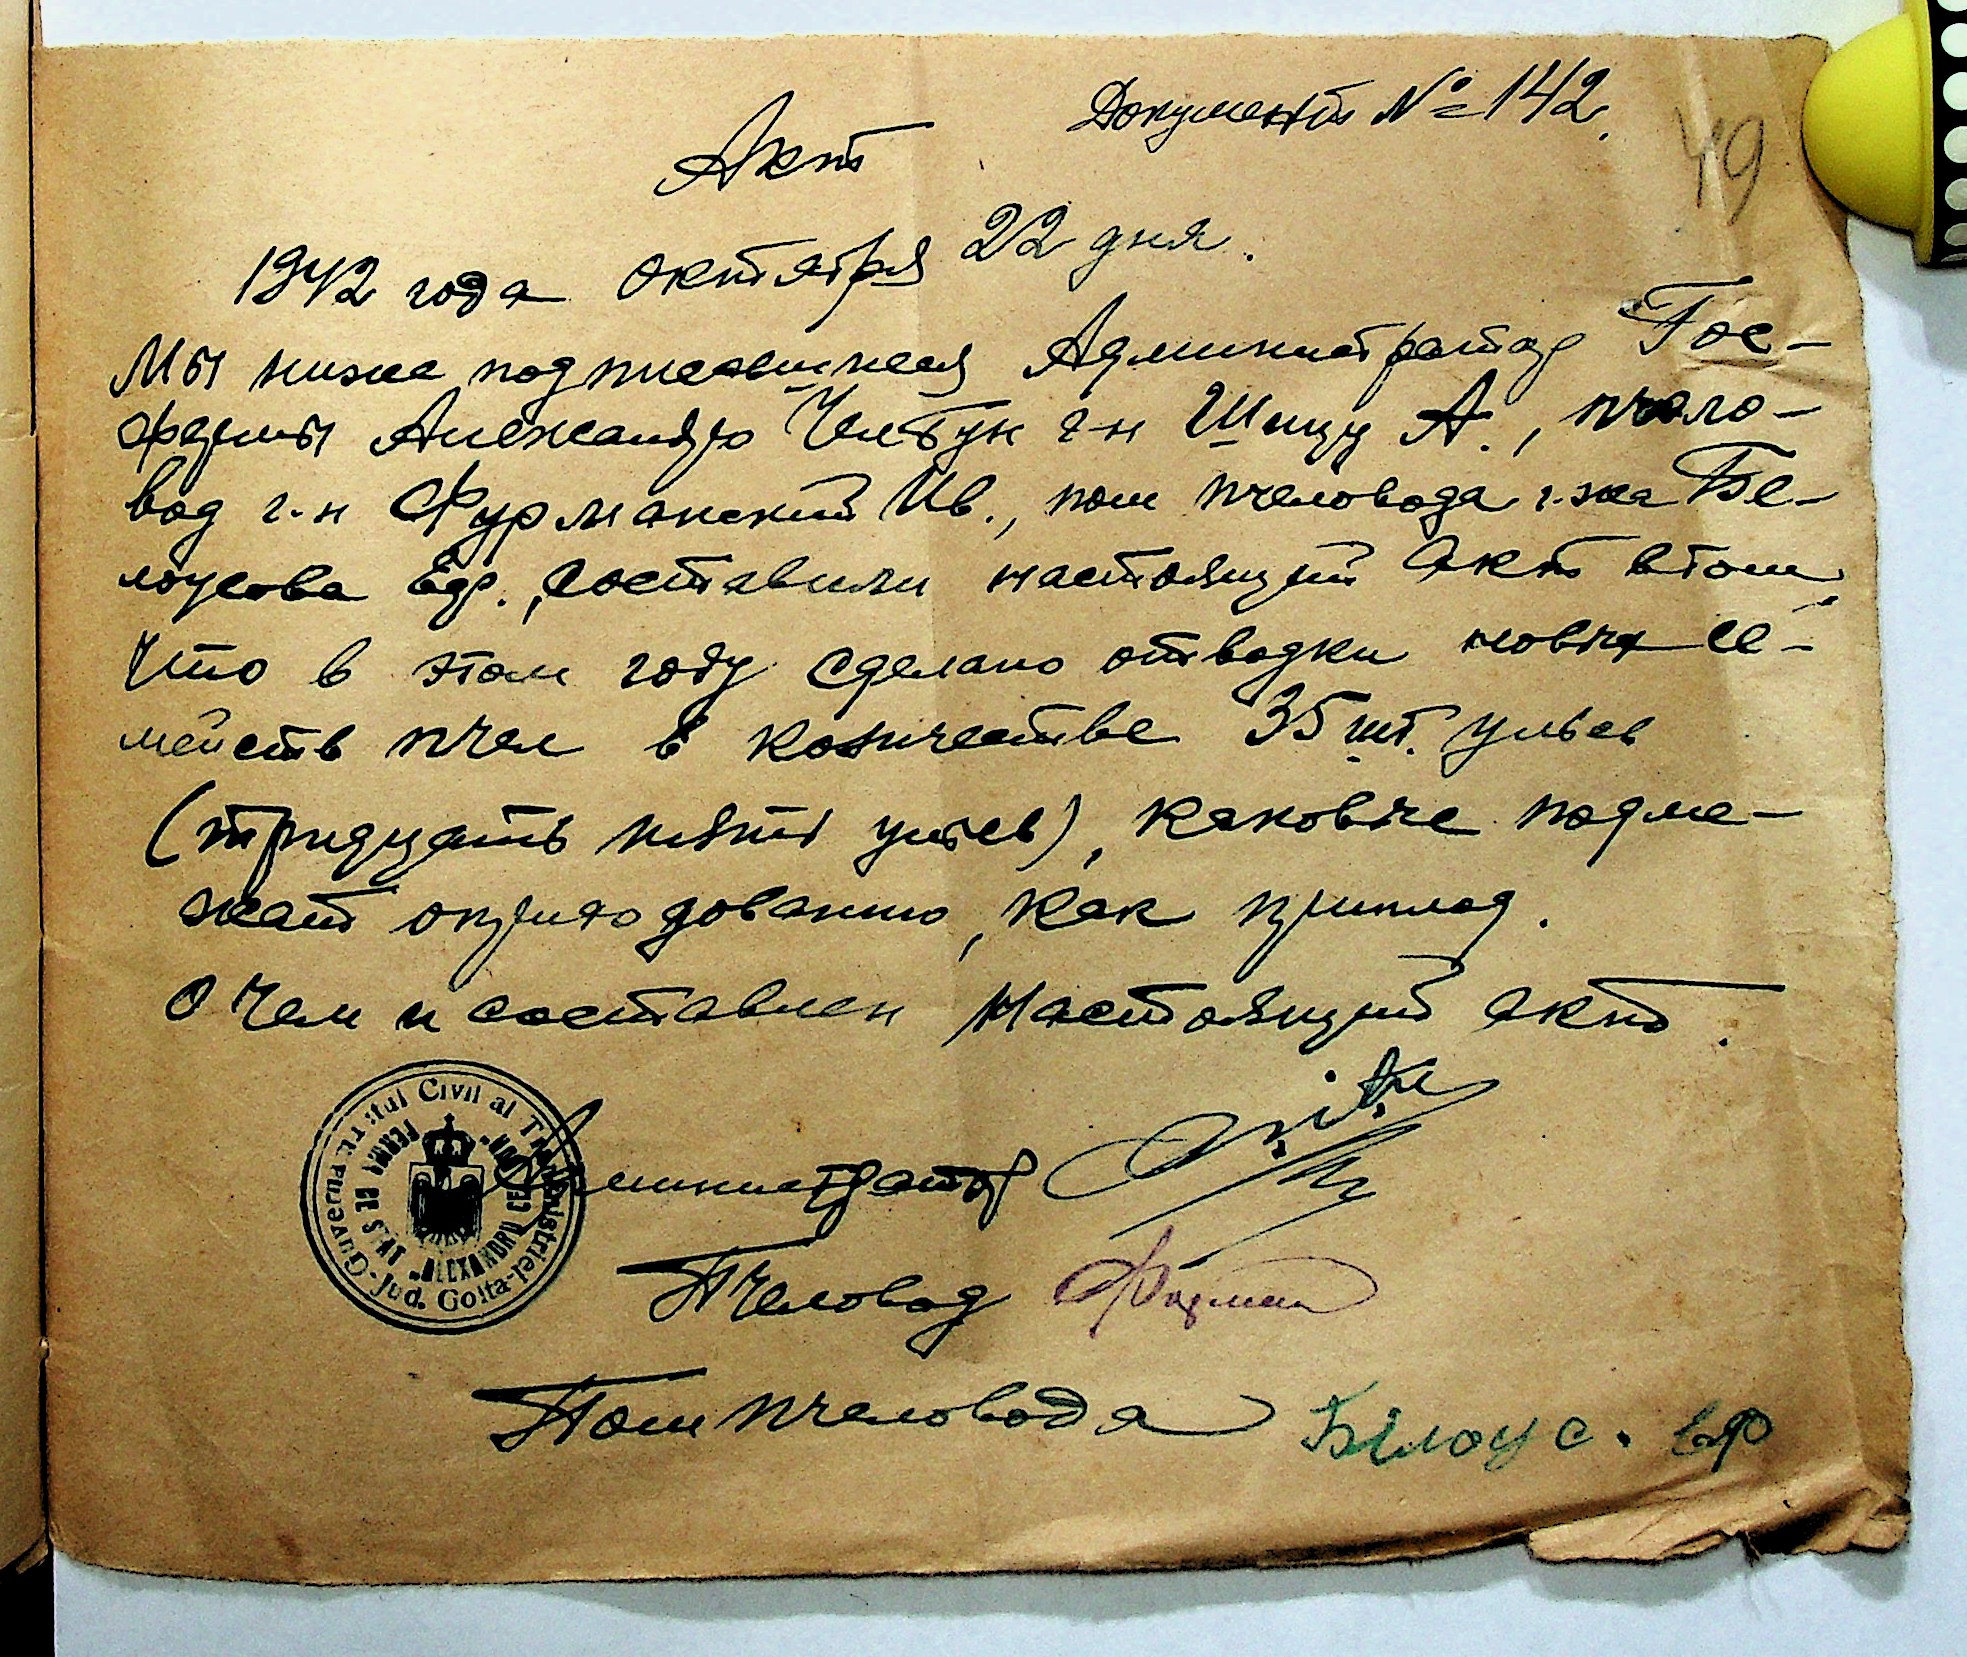 Документ № 142.
49
Акт
1942 года октября 22 дня.
Мы ниже подписавшиеся Администратор Гос-
фермы Александро Челбун г-н Шпицу А., пчело-
вод г-н Фурманский Ив., пом пчеловода г-жа Бе-
лоусова Еф., составили настоящий акт в том,
что в этом году сделано отводки новых се-
мейств пчел в количестве 35 шт. ульев
(тридцать пять ульев), каковые подле-
жат оприходованию, как приплод.
О чем и составлен настоящий акт.
Guvernământul Civil al Transnistriei-Jud. Golta-
FERMA DE STAT „ALEXANDRU CEL BUN"
Администратор
Пчеловод Фурман
Пом пчеловода Білоус. Еф